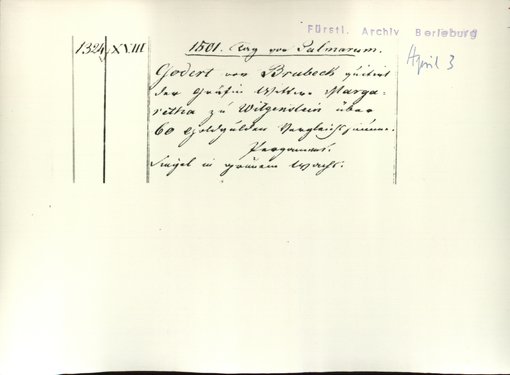 Fürstl. Archiv Berleburg
1324 XXIII 1501. Tag vor Palmarum.
April 3
Godert von Brabeck quitirt
der Gräfin Wittwe Marga-
retha zu Witgenstein über
60 Goldgulden Vergleichssumme.
Pergament.
Siegel in grünem Wachs.